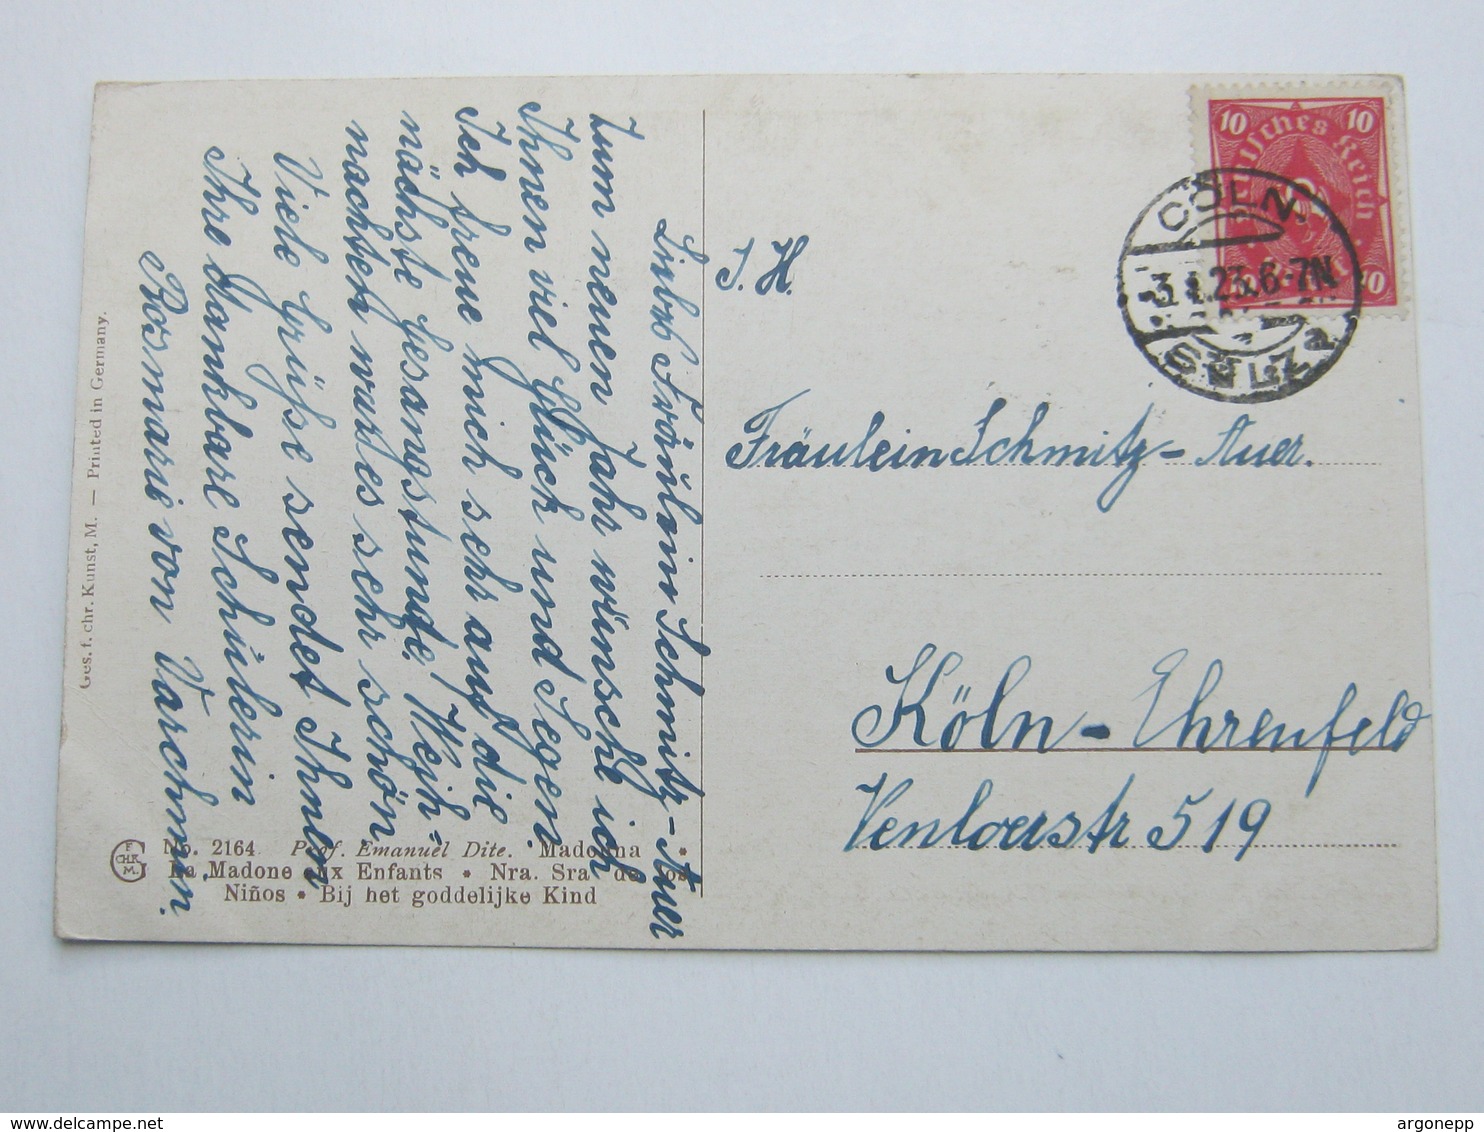 Liebes Fräulein Schmitz-Auer
Zum neuen Jahr wünsche ich
Ihnen viel Glück und Segen.
Ich freue mich sehr auf die
nächste Gesangstunde. Weih-
nachten war es sehr schön.
Viele Grüße sendet Ihnen
Ihre dankbare Schülerin
Rosmarie von
J. H.
Fräulein Schmitz-Auer.
Köln-Ehrenfeld
Venloerstr 519
10 10
Deutsches Reich
10
CÖLN
3.1.23.6-7N
SÜLZ
Ges. f. chr. Kunst, M. — Printed in Germany.
F
G CHR. K
M.
No. 2164. Prof. Emanuel Dite. Madonna *
La Madone aux Enfants * Nra. Sra de los
Niños * Bij het goddelijke Kind
argonepp